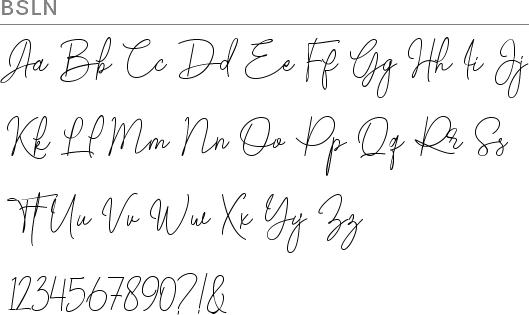 BSLN
Aa Bb Cc Dd Ee Ff Gg Hh Ii Jj
Kk Ll Mm Nn Oo Pp Qq Rr Ss
Tt Uu Vv Ww Xx Yy Zz
1234567890?!&